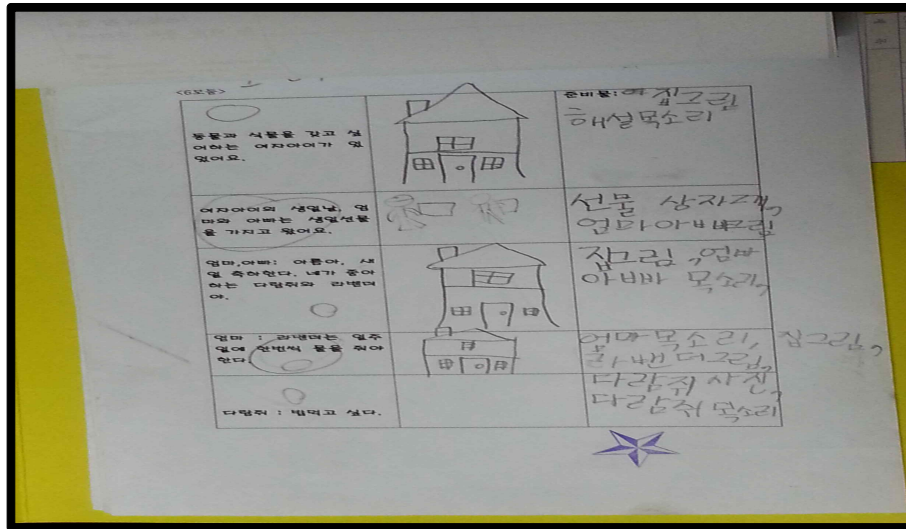 <6모둠>
동물과 식물을 갖고 싶
어하는 여자아이가 있
었어요.
준비물: 집그림
해설목소리
여자아이의 생일날, 엄
마와 아빠는 생일선물
을 가지고 왔어요.
선물 상자2개,
엄마아빠그림
엄마,아빠: 아름아, 생
일 축하한다. 네가 좋아
하는 다람쥐와 라벤더
야.
집그림, 엄마
아빠 목소리,
엄마 : 라벤더는 일주
일에 한번씩 물을 줘야
한다.
엄마목소리, 집그림,
라벤더그림,
다람쥐 : 밥먹고 싶다.
다람쥐 사진,
다람쥐 목소리